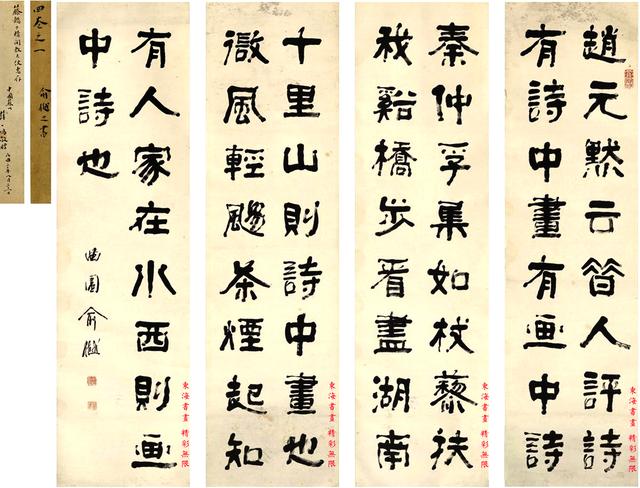 趙元黙云昔人評詩
有詩中畫有画中詩
秦仲孚集如杖藜扶
我谿橋步看盡湖南
十里山則詩中畫也
微風輕颺茶煙起知
有人家在水西則画
中詩也
曲園俞樾
俞樾之書
東海書畫 精彩無限
東海書畫 精彩無限
東海書畫 精彩無限
東海書畫 精彩無限